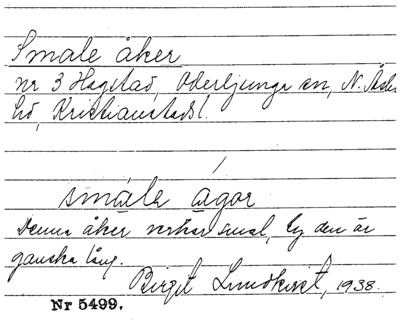 Smale åker
nr 3 Hagstad, Oderljunga sn, N. Åsbo
hd, Kristianstads l.
småle ågor
Denna åker verkar smal, ty den är
ganska lång.
Birgit Lundkvist, 1938.
Nr 5499.